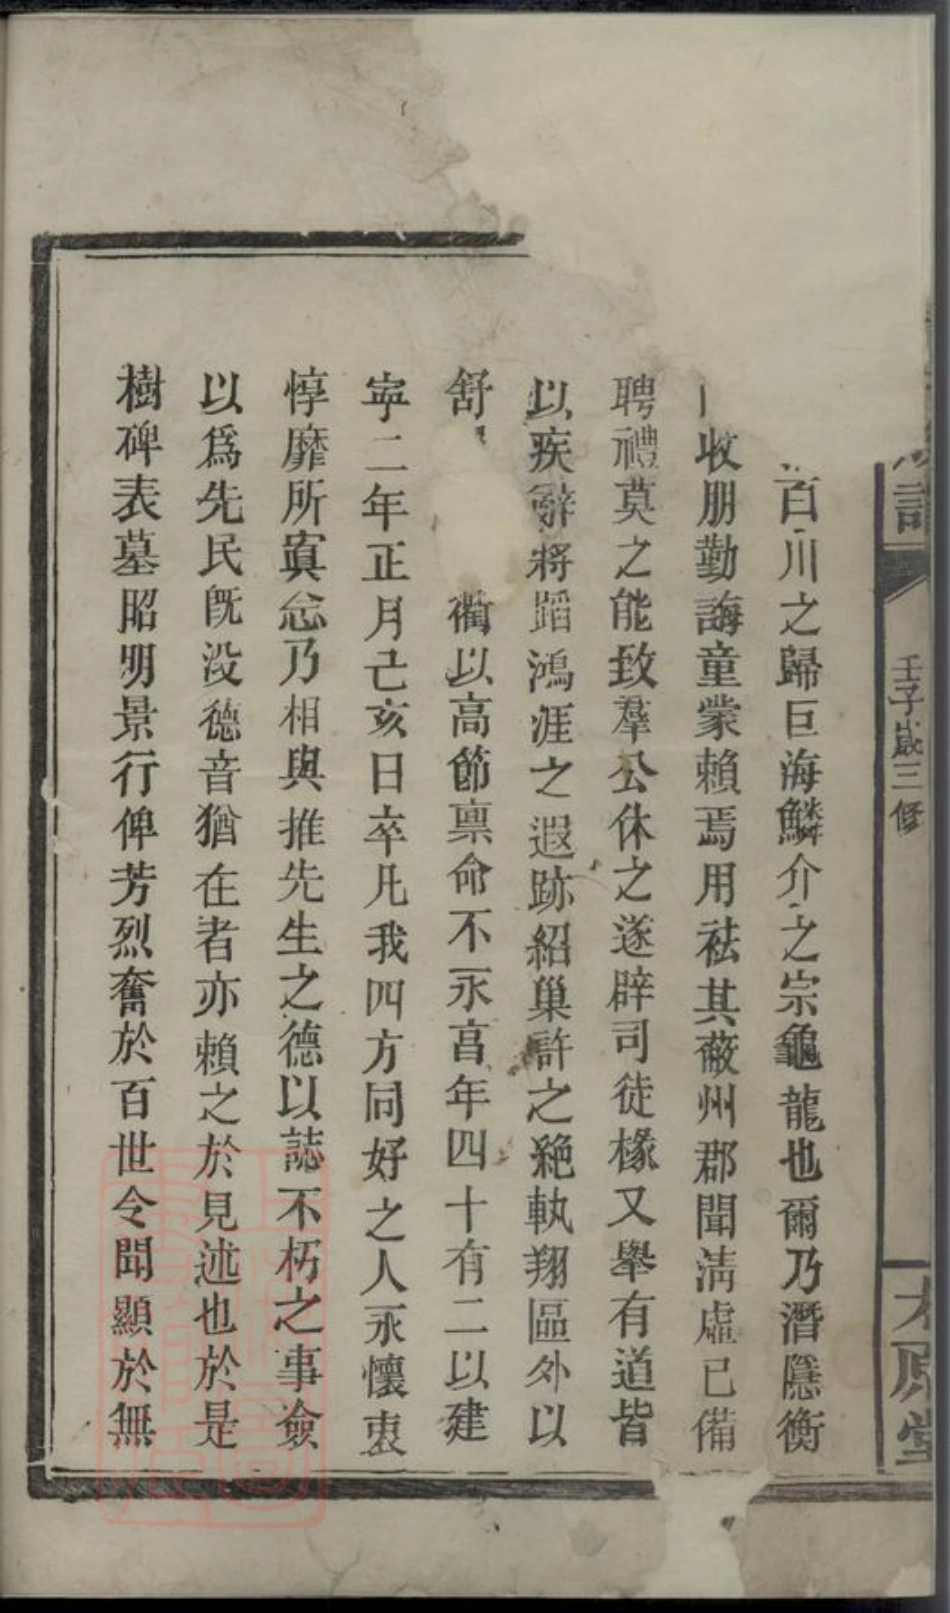 百川之歸巨海鱗介之宗龜龍也爾乃潛隱衡
收朋勤誨童蒙賴焉用祛其蔽州郡聞淸虛已備
聘禮莫之能致羣公休之遂辟司徒椽又舉有道皆
以疾辭將蹈鴻涯之遐跡紹巢許之絶執翔區外以
舒衢以高節禀命不永亯年四十有二以建
寜二年正月己亥日卒凡我四方同好之人永懷衷
悖靡所寘念乃相與推先生之德以誌不朽之事僉
以爲先民旣没德音猶在者亦賴之於見述也於是
樹碑表墓昭明景行俾芳烈奮於百世令聞顯於無
譜
壬子歲三修
太原堂